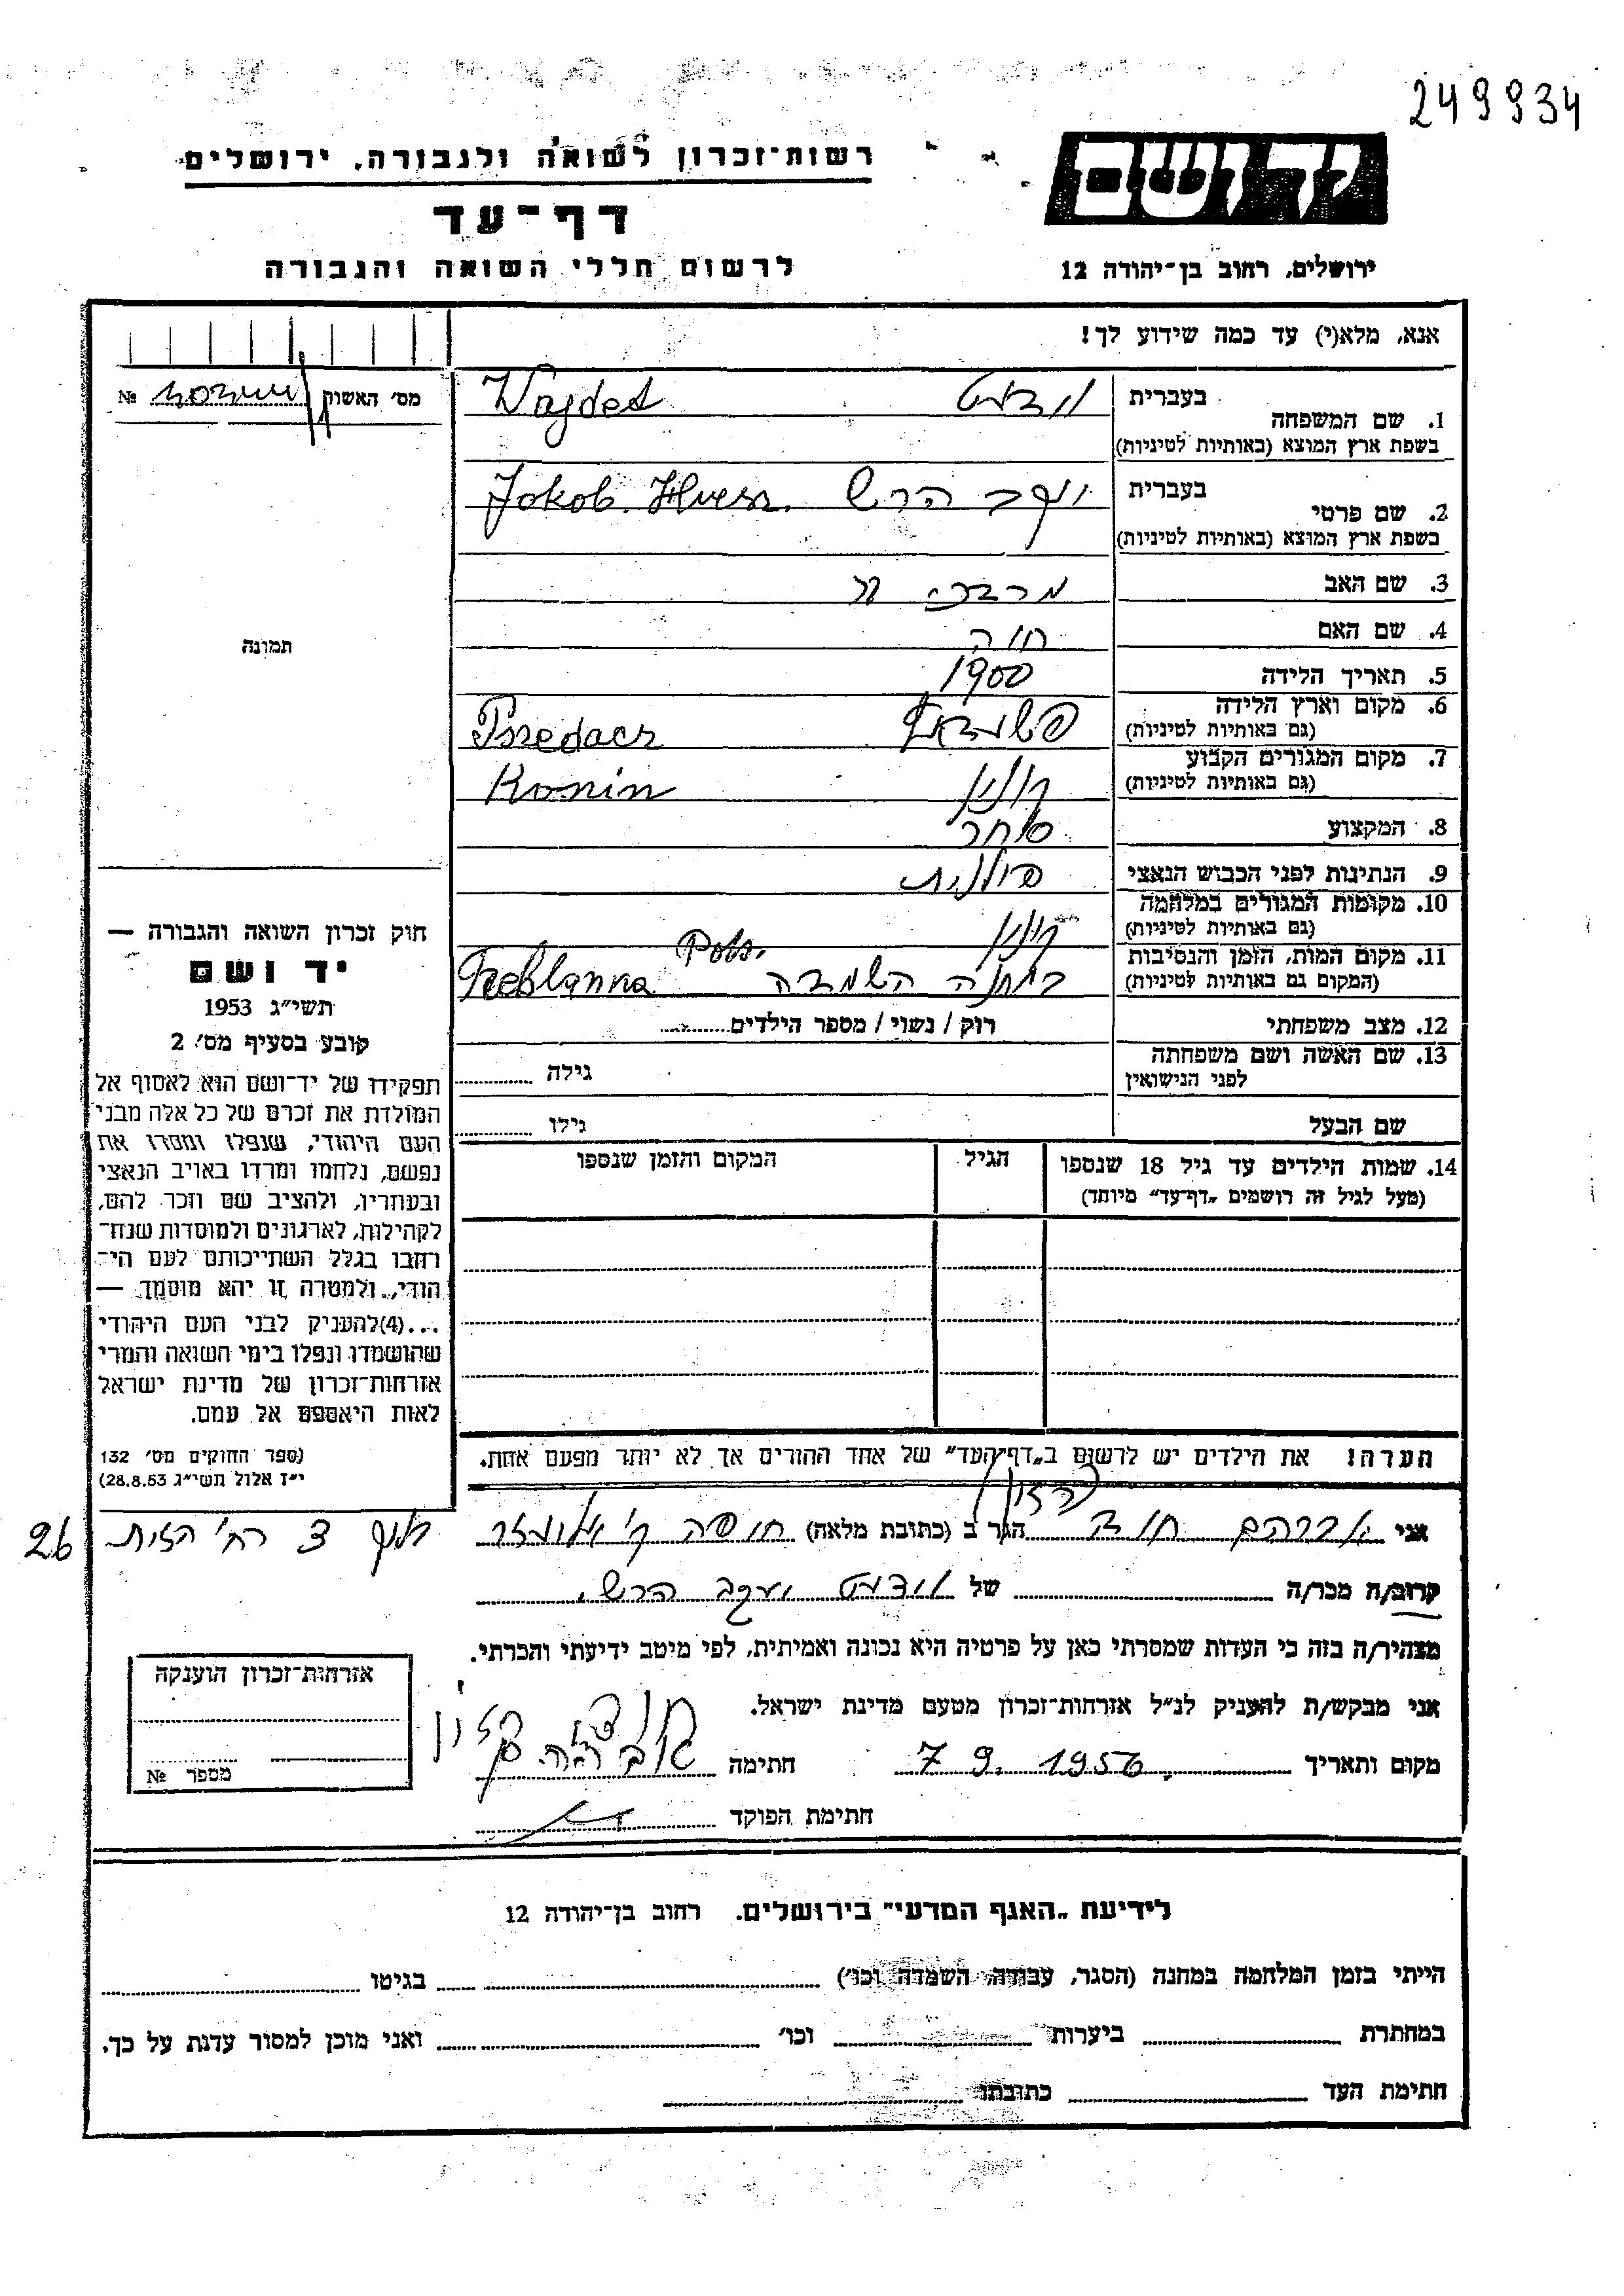 249934
רשות־זכרון לשואה ולגבורה, ירושלים
יד ושם
דף־עד
לרשום חללי השואה והגבורה
ירושלים, רחוב בן־יהודה 12
אנא, מלא(י) עד כמה שידוע לך!
מס׳ האשור №
1. שם המשפחה בעברית
בשפת ארץ המוצא (באותיות לטיניות)
Wajdet
2. שם פרטי בעברית יעקב הרש
בשפת ארץ המוצא (באותיות לטיניות)
Jokob. Hersz.
3. שם האב מרדכי
4. שם האם חוה
5. תאריך הלידה 1900
6. מקום וארץ הלידה
(גם באותיות לטיניות)
Pszedecz
7. מקום המגורים הקבוע קונין Konin
(גם באותיות לטיניות)
8. המקצוע סוחר
9. הנתינות לפני הכבוש הנאצי פולנית
10. מקומות המגורים במלחמה קונין
(גם באותיות לטיניות)
11. מקום המות, הזמן והנסיבות במחנה השמדה Treblanna
(המקום גם באותיות לטיניות)
12. מצב משפחתי רוק / נשוי / מספר הילדים
13. שם האשה ושם משפחתה גילה
לפני הנישואין
שם הבעל גילו
14. שמות הילדים עד גיל 18 שנספו הגיל המקום והזמן שנספו
(מעל לגיל זה רושמים „דף־עד״ מיוחד)
תמונה
חוק זכרון השואה והגבורה —
יד ושם
תשי״ג 1953
קובע בסעיף מס׳ 2
תפקידו של יד־ושם הוא לאסוף אל
המולדת את זכרם של כל אלה מבני
העם היהודי, שנפלו ומסרו את
נפשם, נלחמו ומרדו באויב הנאצי
ובעוזריו, ולהציב שם וזכר להם,
לקהילות, לארגונים ולמוסדות שנח־
רבו בגלל השתייכותם לעם הי־
הודי, ולמטרה זו יהא מוסמך —
...(4)להעניק לבני העם היהודי
שהושמדו ונפלו בימי השואה והמרי
אזרחות־זכרון של מדינת ישראל
לאות היאספם אל עמם.
(ספר החוקים מס׳ 132
י״ז אלול תשי״ג 28.8.53)
הערה! את הילדים יש לרשום ב„דף־העד״ של אחד ההורים אך לא יותר מפעם אחת.
אני אברהם הגר ב (כתובת מלאה) רח׳ הזית 26
קרוב/ה מכר/ה של יעקב הרש.
מצהיר/ה בזה כי העדות שמסרתי כאן על פרטיה היא נכונה ואמיתית, לפי מיטב ידיעתי והכרתי.
אני מבקש/ת להעניק לנ״ל אזרחות־זכרון מטעם מדינת ישראל.
מקום ותאריך 7 9. 1956. חתימה
חתימת הפוקד
אזרחות־זכרון הוענקה
מספר №
לידיעת „האגף המדעי״ בירושלים. רחוב בן־יהודה 12
הייתי בזמן המלחמה במחנה (הסגר, עבודה, השמדה וכו׳) בגיטו
במחתרת ביערות וכו׳ ואני מוכן למסור עדות על כך.
חתימת העד כתובתו